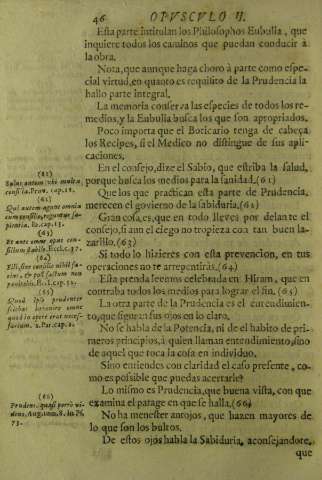 46 OPVSCVLO II.
Esta parte intitulan los Philosophos Eubulia, que
inquiere todos los caminos que puedan conducir à
la obra.
Nota, que aunque haga choro à parte como espe-
cial virtud, en quanto es requisito de la Prudencia la
hallo parte integral.
La memoria conserva las especies de todos los re-
medios, y la Eubulia busca los que son apropriados.
Poco importa que el Boticario tenga de cabeça
los Recipes, si el Medico no distingue de sus apli-
caciones.
En el consejo, dize el Sabio, que estriba la salud,
porque busca los medios para la sanidad. (61)
Que los que practican esta parte de Prudencia,
merecen el govierno de la sabiduria. (62)
Gran cosa, es, que en todo lleves por delante el
consejo, si aun el ciego no tropieza con tan buen la-
zarillo. (63)
Si todo lo hizieres con esta prevencion, en tus
operaciones no te arrepentiràs. (64)
Esta prenda leemos celebrada en Hiram, que en
contraba todos los medios para lograr el fin. (65)
La otra parte de la Prudencia es el entendimien-
to, que siguran sus ojos en lo claro.
No se habla de la Potencia, ni de el habito de pri-
meros principios, à quien llaman entendimiento, sino
de aquel que toca la cosa en individuo.
Sino entiendes con claridad el caso presente, co-
mo es possible que puedas acertarle?
Lo mismo es Prudencia, que buena vista, con que
examina el parage en que se halla. (66)
No ha menester antojos, que hazen mayores de
lo que son los bultos.
De estos ojos habla la Sabiduria, aconsejandote,
que
(61)
Salus autem ubi multa
consilia. Prov. cap. 11.
(62)
Qui autem agunt omnia
cum consilio, reguntur sa-
pientia. Ib. cap. 13.
(63)
Et ante omne opus con-
silium stabile. Eccl. c. 37.
(64)
Fili, sine consilio nihil fa-
cias, & post factum non
pœnitebis. Eccl. cap. 32.
(65)
Quod ipse prudenter
sciebat
quod in opere erat neces-
sarium. 2. Par. cap. 2.
(66)
Prudens, quasi porrò vi-
dens, August. 8. in Ps.
73.